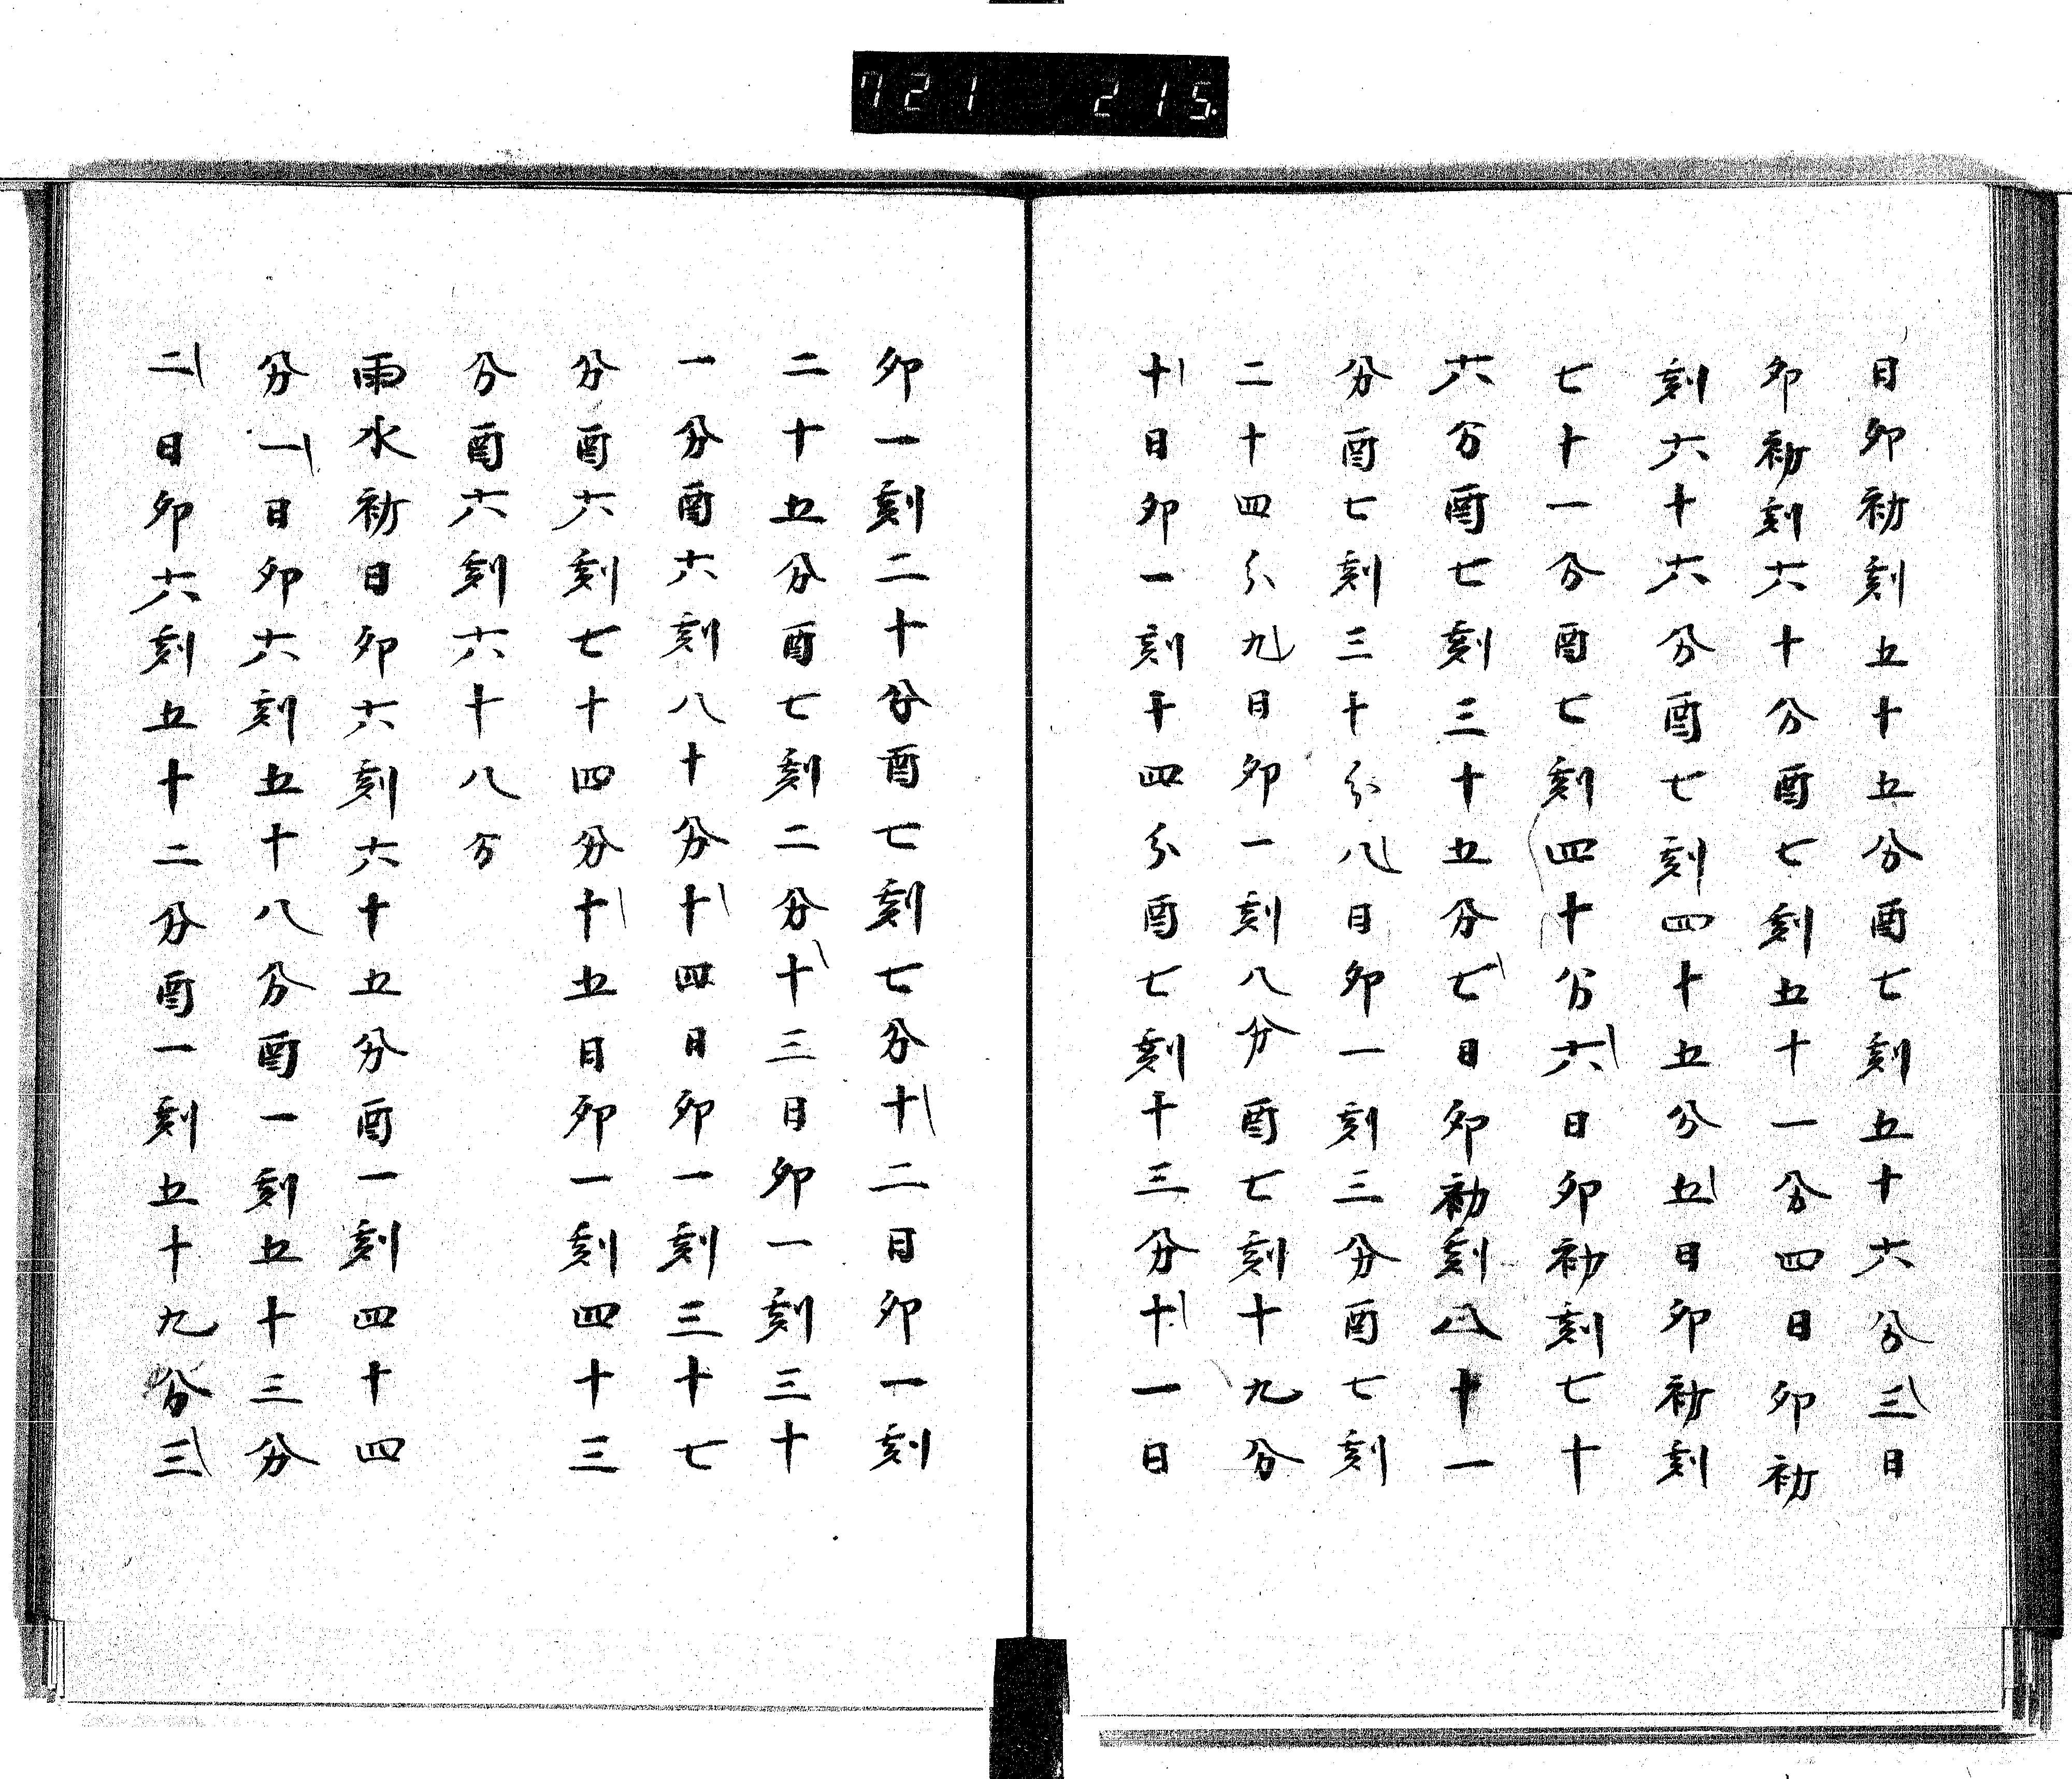 721 215
日卯初刻五十五分酉七刻五十六分三日
卯初刻六十分酉七刻五十一分四日卯初
刻六十六分酉七刻四十五分五日卯初刻
七十一分酉七刻四十分六日卯初刻七十
六分酉七刻三十五分七日卯初刻八十一
分酉七刻三十分八日卯一刻三分酉七刻
二十四分九日卯一刻八分酉七刻十九分
十日卯一刻十四分酉七刻十三分十一日
卯一刻二十分酉七刻七分十二日卯一刻
二十五分酉七刻二分十三日卯一刻三十
一分酉六刻八十分十四日卯一刻三十七
分酉六刻七十四分十五日卯一刻四十三
分酉六刻六十八分
雨水初日卯六刻六十五分酉一刻四十四
分一日卯六刻五十八分酉一刻五十三分
二日卯六刻五十二分酉一刻五十九分三